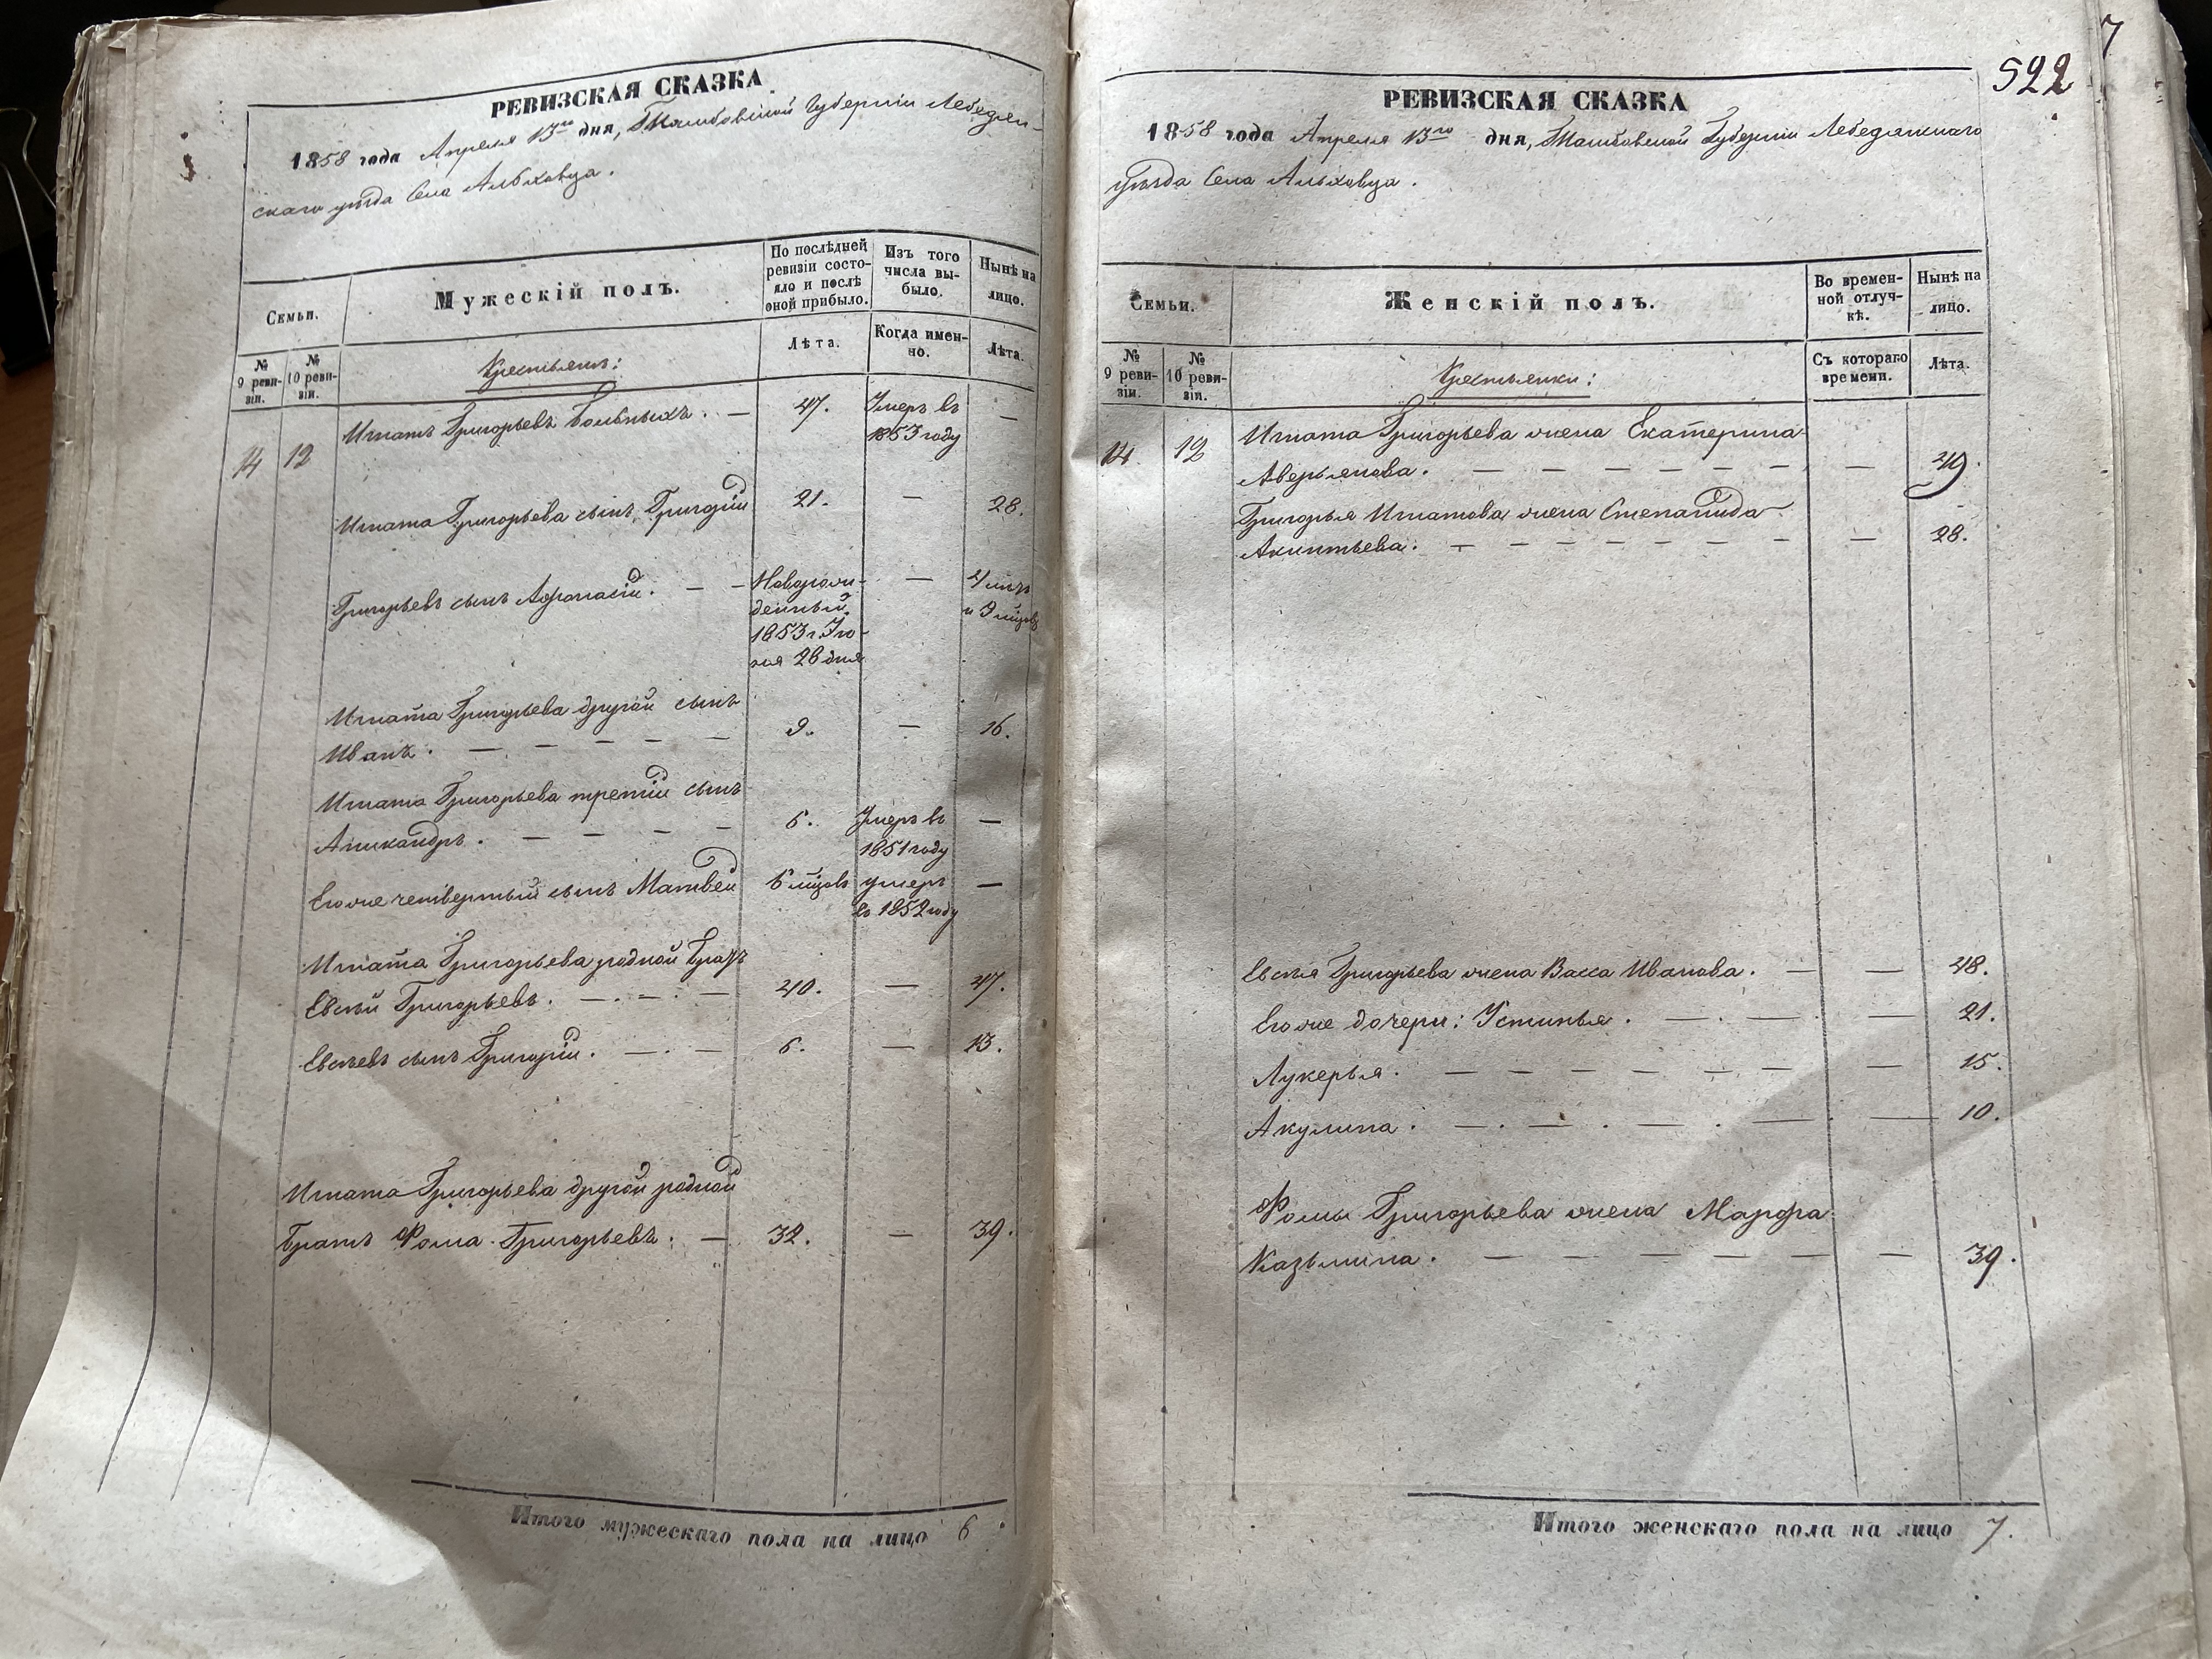 РЕВИЗСКАЯ СКАЗКА
1858 года Апреля 13го дня, Тамбовской Губернии Лебедян-
скаго уѣзда Села Альховца.
Семьи.
Мужескій полъ.
По послѣдней ревизіи состо-яло и послѣ оной прибыло.
Изъ того числа вы-было.
Нынѣ на лицо.
№ 9 реви-зіи.
№ 10 реви-зіи.
Крестьянъ:
Лѣта.
Когда имен-но.
Лѣта.
14 12 Игнатъ Григорьевъ Больныхъ. — 47. Умеръ въ —
1853 году
Игната Григорьева сынъ Григорій 21. — 28.
Григорьевъ сынъ Афонасій. — — Новорож- — 4 лѣтъ
денный и 9 мѣцовъ
1853 г. Iю-
ля 28 дня
Игната Григорьева другой сынъ
Иванъ. — — — — — 9. — 16.
Игната Григорьева третій сынъ
Аникандръ. — — — — 6. Умеръ въ —
1851 году
Его же четвертый сынъ Матвей 6 мѣцовъ умеръ —
въ 1852 году
Игната Григорьева родной братъ
Евсѣй Григорьевъ. — — — 40. — 47.
Евсѣевъ сынъ Григорій. — — 6. — 13.
Игната Григорьева другой родной
братъ Фома Григорьевъ. — 32. — 39.
Итого мужескаго пола на лицо 6.
7
522
РЕВИЗСКАЯ СКАЗКА
1858 года Апреля 13го дня, Тамбовской Губернии Лебедянскаго
уѣзда Села Альховца.
Семьи.
Женскій полъ.
Во времен-ной отлуч-кѣ.
Нынѣ на лицо.
№ 9 реви-зіи.
№ 10 реви-зіи.
Крестьянки:
Съ котораго времени.
Лѣта.
14. 12 Игната Григорьева жена Екатерина
Аверьянова. — — — — — — — 49.
Григорья Игнатова жена Степанида
Акинтьева. — — — — — — — — 28.
Евсѣя Григорьева жена Васса Иванова. — — 48.
Его же дочери: Устинья. — — — 21.
Лукерья. — — — — — — — 15.
Акулина. — — — — — 10.
Фомы Григорьева жена Марфа
Казьмина. — — — — — — — 39.
Итого женскаго пола на лицо 7.